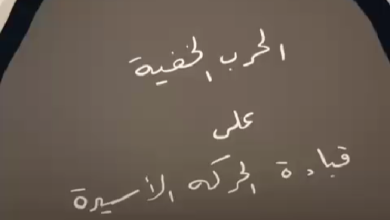 الحرب الخفية
على
قيادة الحركه الأسيرة